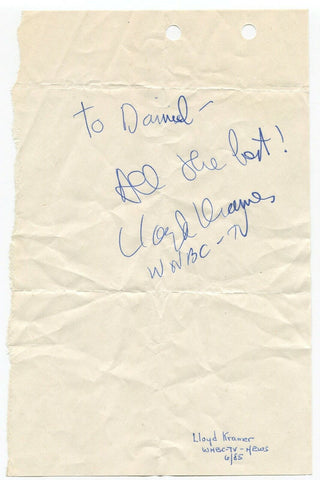 To Daniel -
All the best!
Lloyd Kramer
WNBC-TV
Lloyd Kramer
WNBC-TV-NEWS
6/85